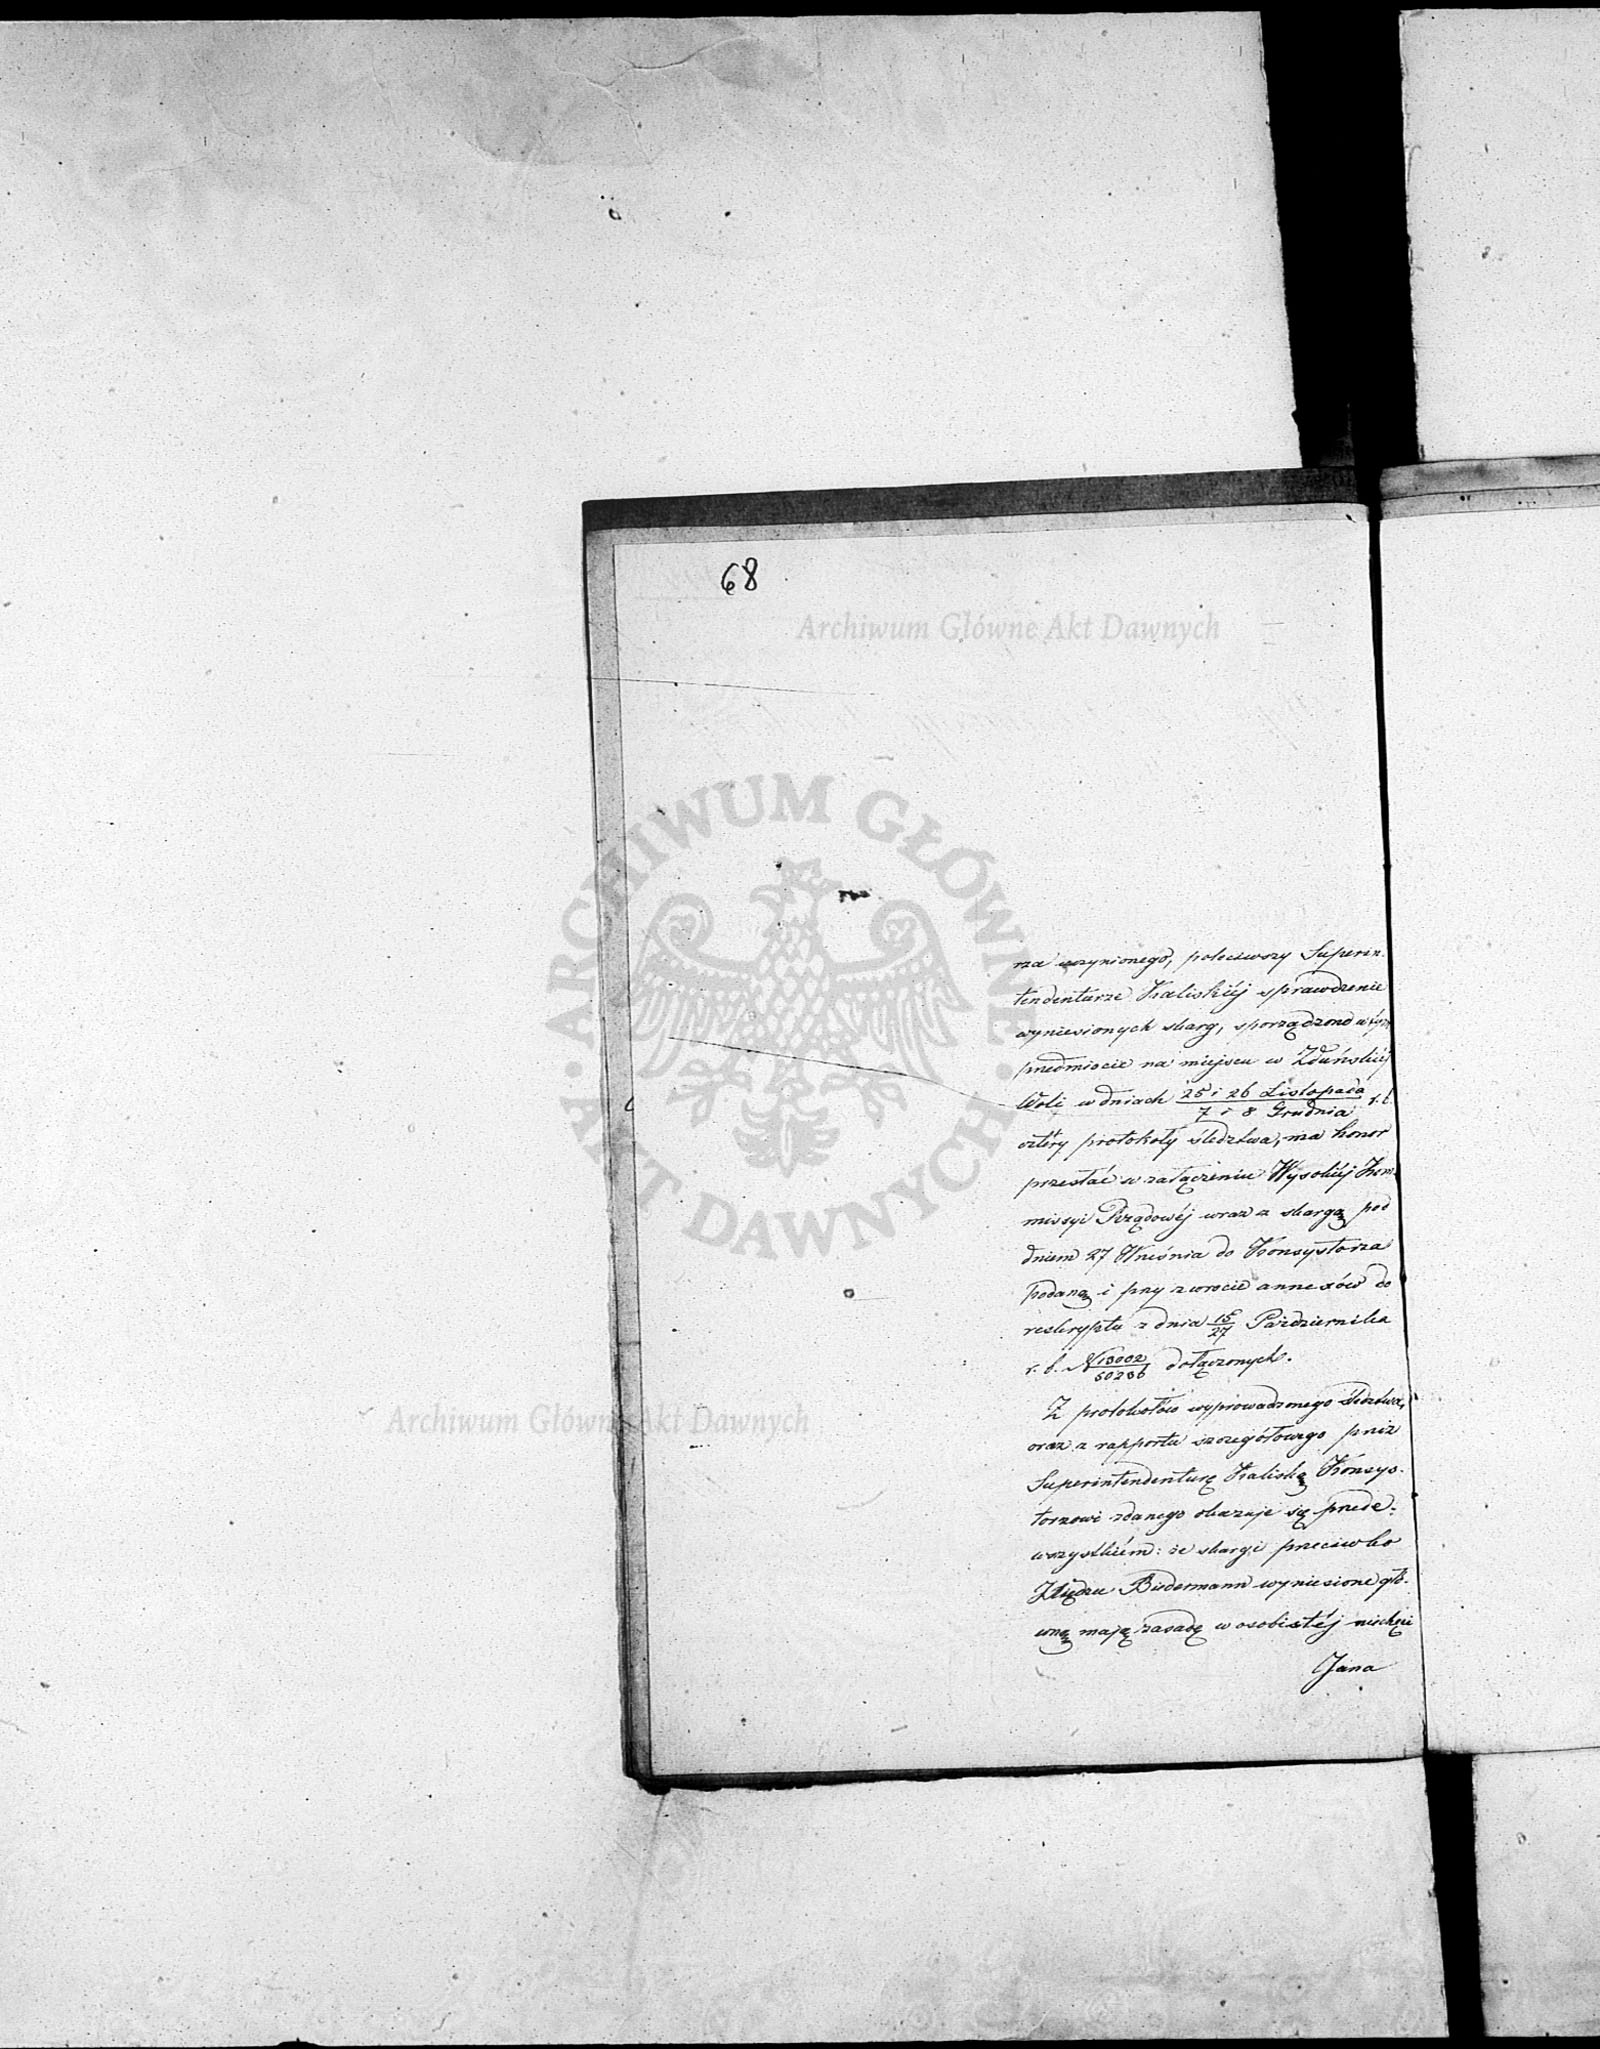 68
rza uczynionego, poleciwszy Superin-
tendenturze Kaliskiéj sprawdzenie
wyniesionych skarg, sporządzone w tym
przedmiocie na miejscu w Zduńskiéj
Woli w dniach 25 i 26 Listopada / 7 i 8 Grudnia r. b.
cztéry protokoły śledztwa, ma honor
przesłać w załączeniu Wysokiéj Kom-
missyi Rządowéj wraz z skargą pod
dniem 27 Września do Konsystorza
podaną i przy zwrocie annexów do
reskryptu z dnia 15/27 Października
r. b. N 13002/50236 dołączonych.
Z protokołów wyprowadzonego śledztwa,
oraz z rapportu szczegółowego przez
Superintendenturę Kaliską Konsys-
torzowi zdanego okazuje się przede-
wszystkiém: że skargi przeciwko
Xiędzu Biedermann wyniesione głó-
wną mają zasadę w osobistéj niechęci
Jana
Archiwum Główne Akt Dawnych
ARCHIWUM GŁÓWNE AKT DAWNYCH
Archiwum Główne Akt Dawnych